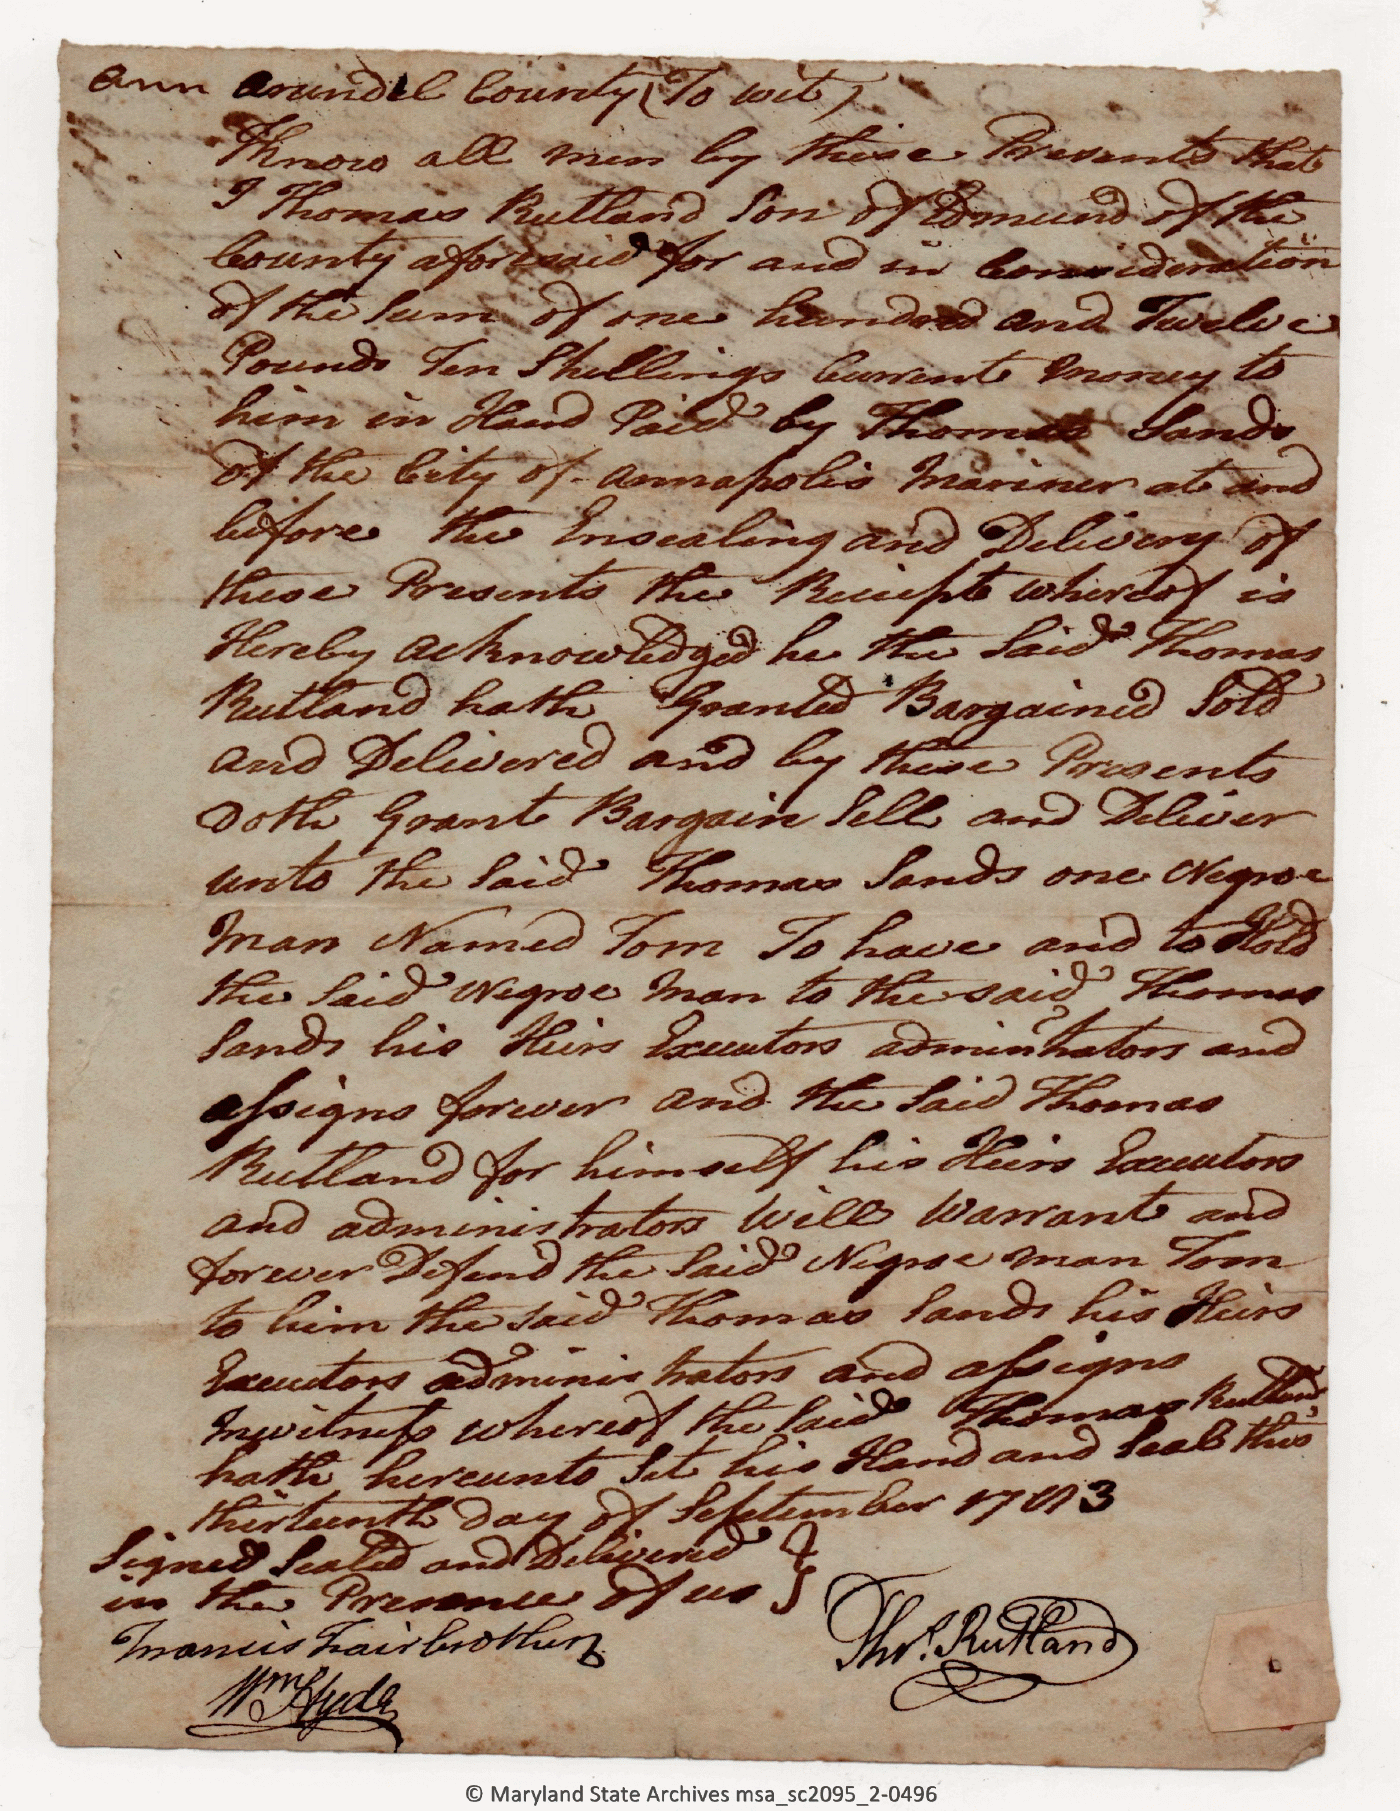 Ann Arundel County (To wit)
Know all men by these Presents that
I Thomas Rutland Son of Edmund of the
County aforesaid for and in Consideration
of the Sum of one hundred and Twelve
Pounds Ten Shillings Current Money to
him in Hand Paid by Thomas Sands
of the City of Annapolis Mariner at and
before the Ensealing and Delivery of
these Presents the Reciept whereof is
Hereby acknowledged he the Said Thomas
Rutland hath Granted Bargained Sold
and Delivered and by these Presents
doth Grant Bargain Sell and Deliver
unto the Said Thomas Sands one Negroe
Man Named Tom To have and to Hold
the Said Negroe Man to the said Thomas
Sands his Heirs Executors administrators and
assigns forever and the Said Thomas
Rutland for himself his Heirs Executors
and administrators Will Warrant and
forever Defend the Said Negroe man Tom
to him the said Thomas Sands his Heirs
Executors administrators and assigns
In witness whereof the Said Thomas Rutland
hath hereunto Set his Hand and Seal this
thirteenth day of September
Signed Sealed and Delivered
in the Presence of us
Francis Fairbrother
Wm Hyde
Thos. Rutland
© Maryland State Archives msa_sc2095_2-0496